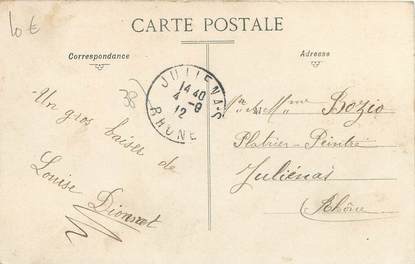 10 €
CARTE POSTALE
Correspondance
Adresse
JULIENAS
14 40
4 - 9
12
RHONE
Un gros baiser de
Louise Dionnet
Mr & Mme Bozio
Platrier - Peintre
Juliénas
Rhône